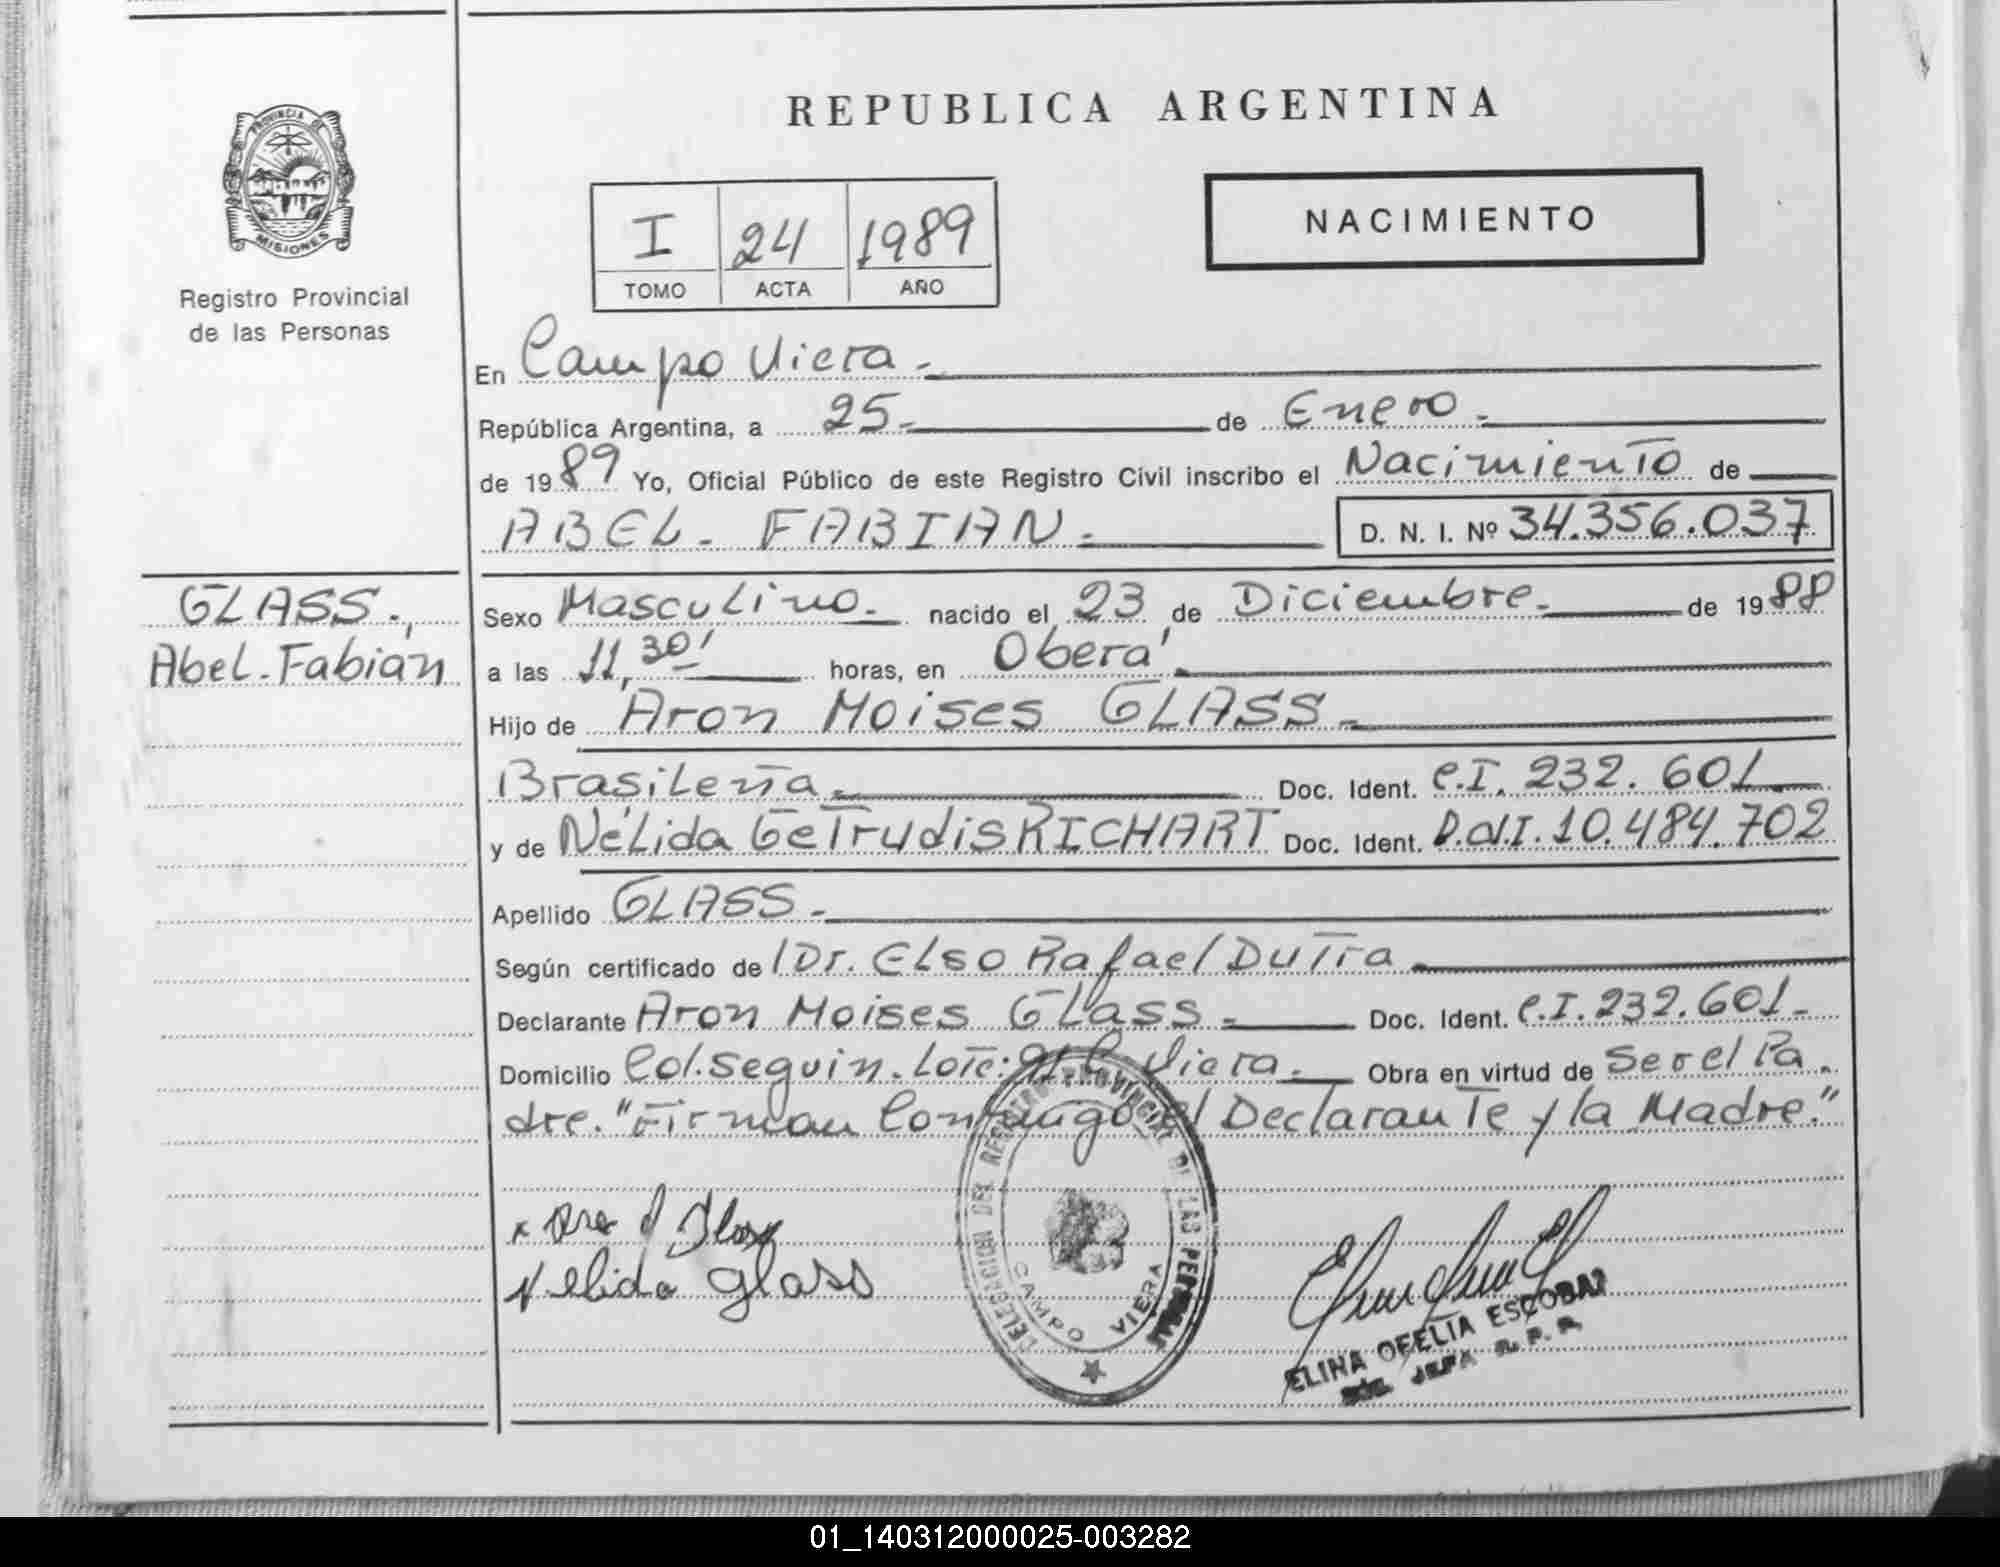 REPUBLICA ARGENTINA
PROVINCIA DE
MISIONES
Registro Provincial
de las Personas
I 24 1989
TOMO ACTA AÑO
NACIMIENTO
En Campo Viera.-
República Argentina, a 25.- de Enero.-
de 1989 Yo, Oficial Público de este Registro Civil inscribo el Nacimiento de
ABEL. FABIAN.- D. N. I. Nº 34.356.037
GLASS.,
Abel. Fabian
Sexo Masculino.- nacido el 23 de Diciembre.- de 1988
a las 11,30' horas, en Oberá.
Hijo de Aron Moises GLASS.-
Brasileña.- Doc. Ident. C.I. 232.601.-
y de Nélida Getrudis RICHART Doc. Ident. D.N.I. 10.484.702
Apellido GLASS.-
Según certificado de/Dr. Elso Rafael Dutra.-
Declarante Aron Moises Glass.- Doc. Ident. C.I. 232.601.-
Domicilio Col. Seguin. Lote: Viera.- Obra en virtud de Ser el Pa
dre. "Firman Conmigo el Declarante y la Madre."
Glass
Nelida Glass
DELEGACION DEL REGISTRO PROVINCIAL DE LAS PERSONAS
CAMPO VIERA
ELINA OFELIA ESCOBAR
JEFA R. P. P.
01_140312000025-003282